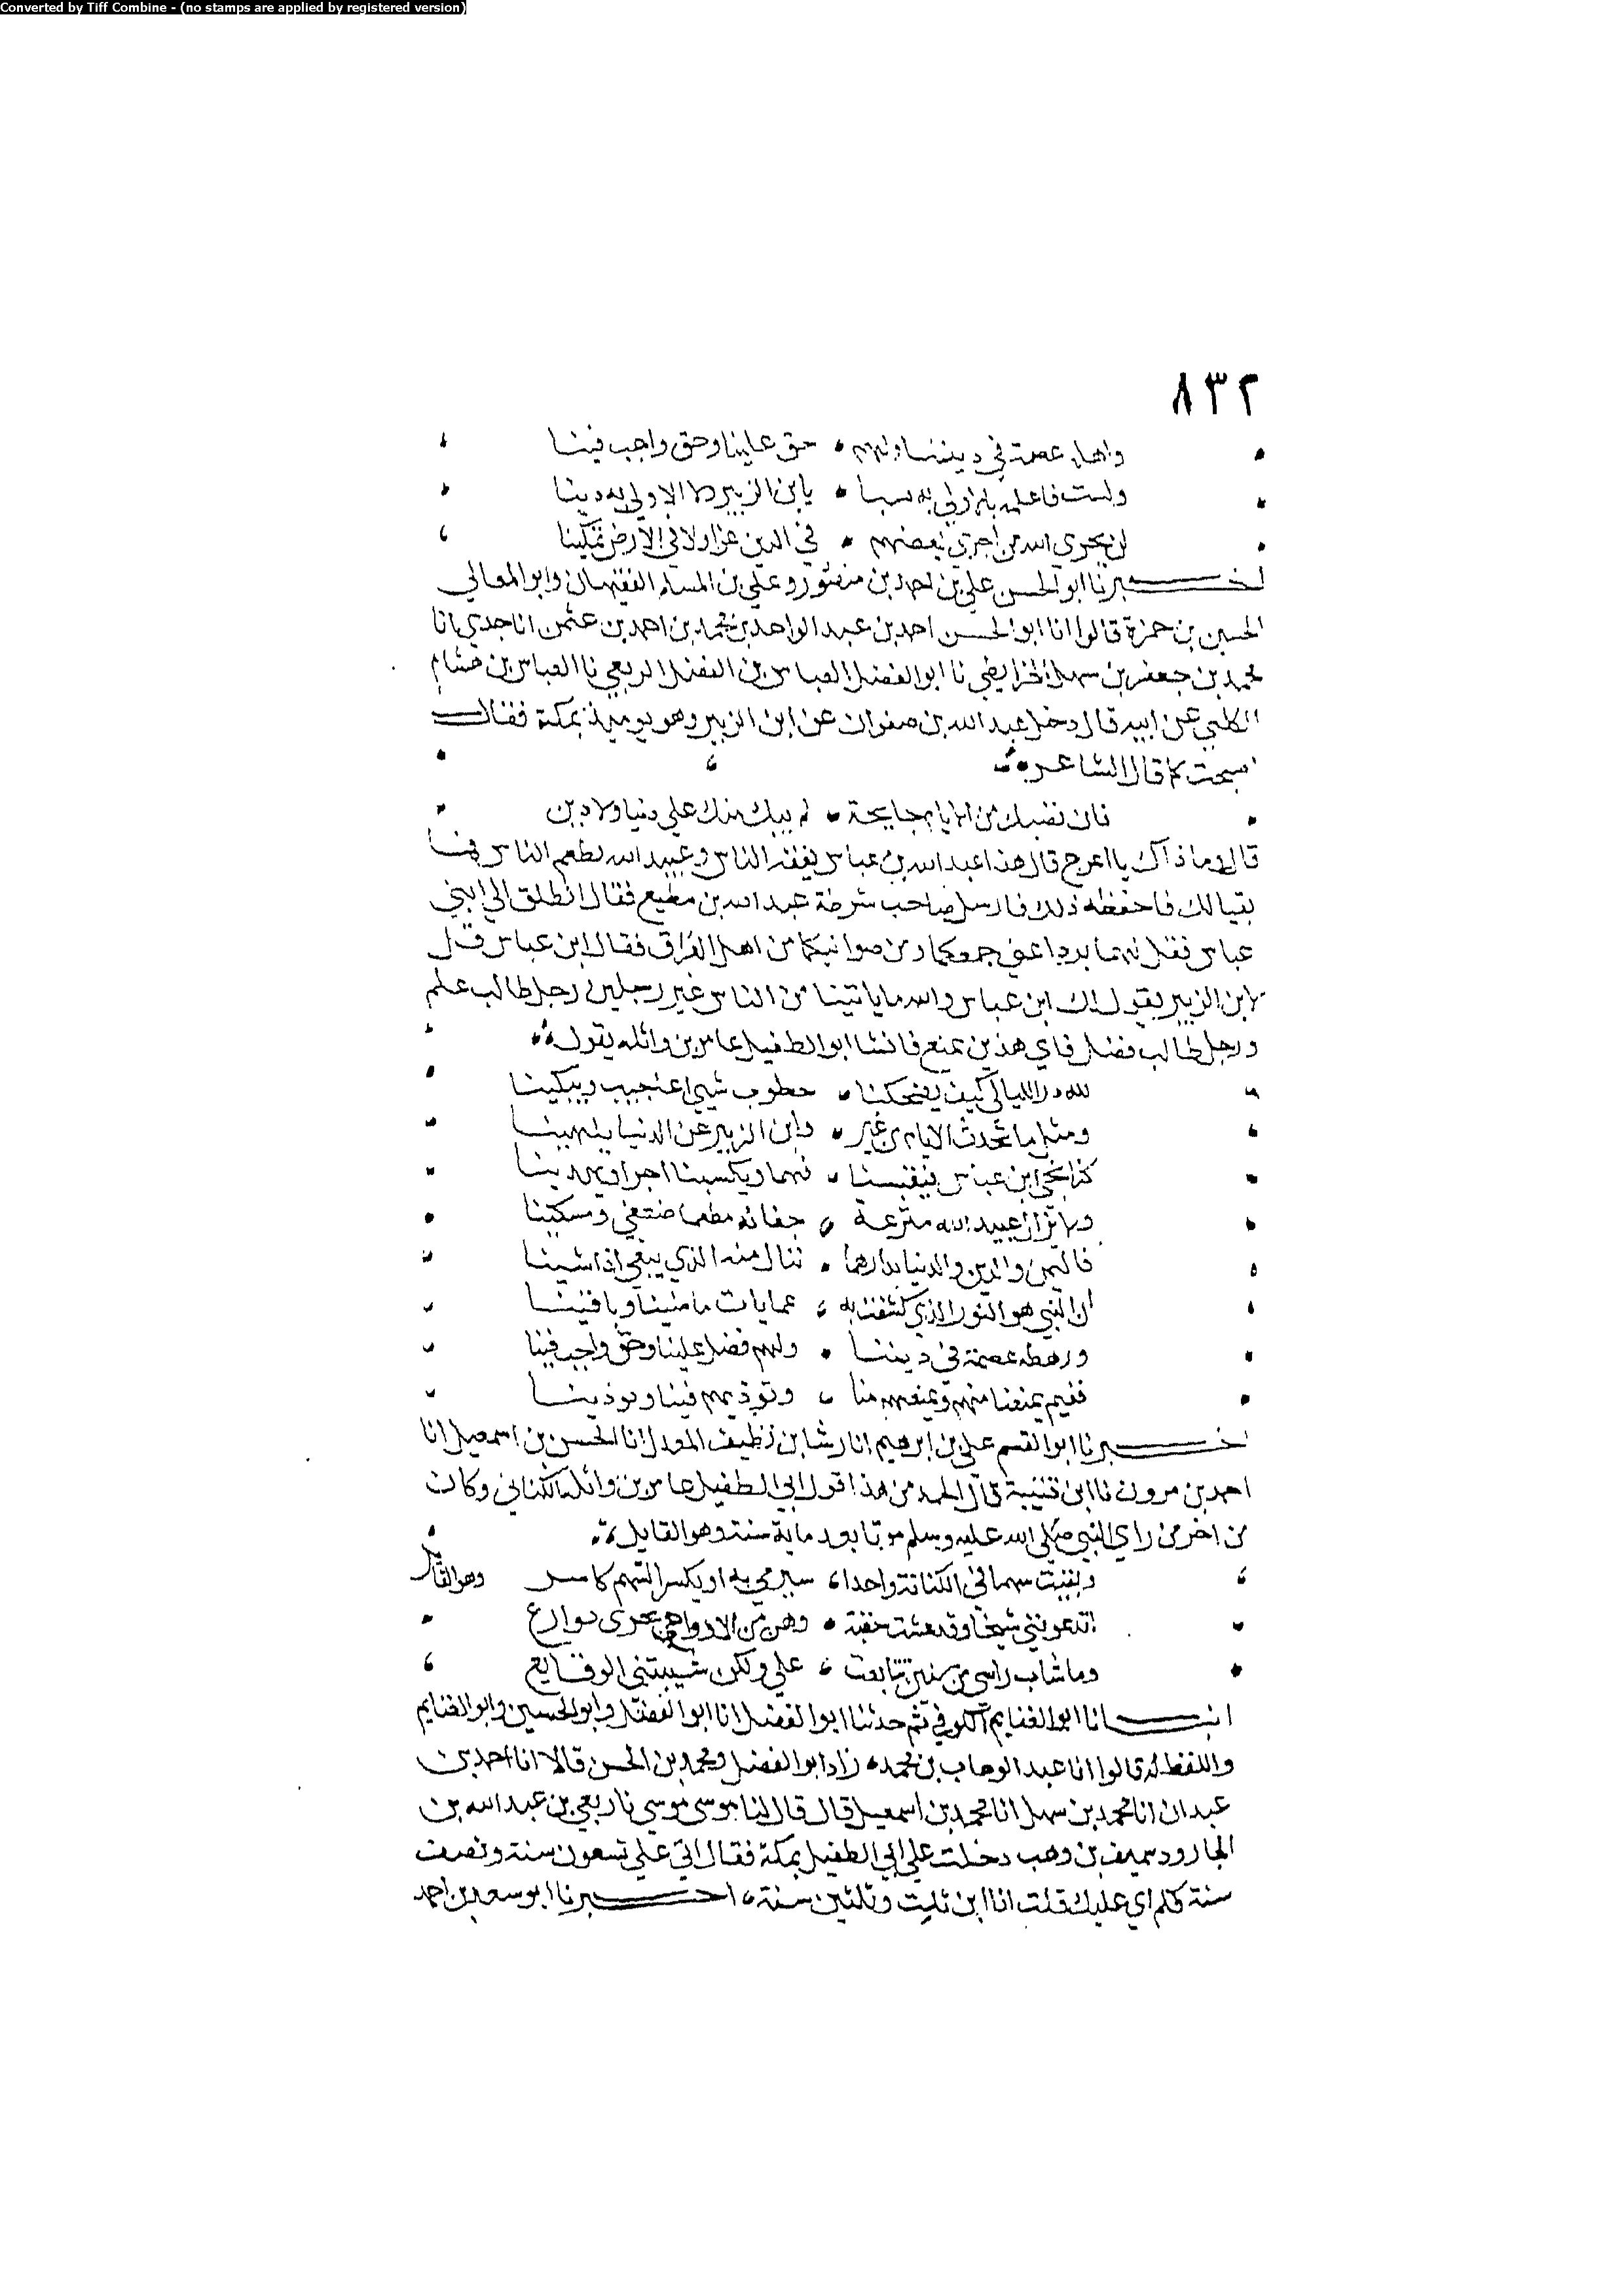 Converted by Tiff Combine - (no stamps are applied by registered version)
٨٣٢
واهله عصمة في ديننا ولهم حق علينا وحق واجب فينا
ولست فاعلمه باولى به سبا يابن الزبير ولا الاولى به دينا
لن يجزي الله من اجزى لبغضهم في الدين عزا ولا في الارض تمكينا
اخبرنا ابو الحسن علي بن احمد بن منصور وعلي بن المسلم الفقيهان وابو المعالي
الحسين بن حمزة قالوا انا ابو الحسن احمد بن عبد الواحد بن محمد بن احمد بن عثمن انا جدي انا
محمد بن جعفر بن سهل الخرايطي نا ابو الفضل العباس بن الفضل الربعي نا العباس بن هشام
الكلبي عن ابيه قال دخل عبد الله بن صفوان عن ابن الزبير وهو يوميذ بمكة فقال
اصبحت كما قال الشاعر
فان تصبك من الايام جايحة لم نبك منك على دنيا ولا دين
قال وما ذاك يا اعرج قال هذا عبد الله بن عباس يفقه الناس وعبيد الله يطعم الناس فما
بقيا لك فاحفظه ذلك فارسل صاحب شرطة عبد الله بن مطيع فقال انطلق الى ابني
عباس فقل لهما بددا عني جمعكما ومن ضوا اليكما من اهل العراق فقال ابن عباس قل
لابن الزبير يقول لك ابن عباس والله ما ياتينا من الناس غير رجلين رجل طالب علم
ورجل طالب فضل فاي هذين نمنع فانشا ابو الطفيل عامر بن واثلة يقول
لله در الليالي كيف يضحكنا خطوب شيئ اعاجيب ويبكينا
ومثل ما تحدث الايام من غير وابن الزبير عن الدنيا يلهينا
كنا نجي ابن عباس فيقبسنا فهما ويكسبنا اجرا ويهدينا
ولا تزال عبيد الله مترعة جفانه مطعما ضيفي ومسكينا
فاليمن والدين والدنيا بدارهما ننال منه الذي يبغي اذا شينا
ان النبي هو النور الذي كشفت به عمايات ماضينا وباقينا
ورهطه عصمة في ديننا ولهم فضل علينا وحق واجب فينا
ففيم يمنعنا منهم ويمنعهم منا وتوذيهم فينا وتوذينا
اخبرنا ابو القسم علي بن ابرهيم انا رشا بن نظيف المعدل انا الحسن بن اسمعيل انا
احمد بن مرون نا ابن قتيبة قال الحمد من هذا قول ابي الطفيل عامر بن واثلة الكناني وكان
من اخر من راي النبي صلى الله عليه وسلم موتا بعد ماية سنة وهو القايل
وبقيت سهما في الكنانة واحدا سيرمي به او يكسر السهم كاسر وهو القايل
اتدعونني شيخا وقد عشت حقبة وهن من الازواج نحوي نوازع
وما شاب راسي من سنين تتابعت علي ولكن شيبتني الوقايع
انبانا ابو الغنايم الكوفي ثم حدثنا ابو الفضل انا ابو الفضل وابو الحسين وابو الغنايم
واللفظ له قالوا انا عبد الوهاب بن محمد زاد ابو الفضل ومحمد بن الحسن قالا انا احمد بن
عبدان انا محمد بن سهل انا محمد بن اسمعيل قال قال لنا موسى نا ربعي بن عبد الله بن
الجارود سيف بن وهب دخلت على ابي الطفيل بمكة فقال اتى علي تسعون سنة ونصف
سنة فكم اتى عليك قلت انا ابن ثلث وثلثين سنة اخبرنا ابو سعد بن احمد